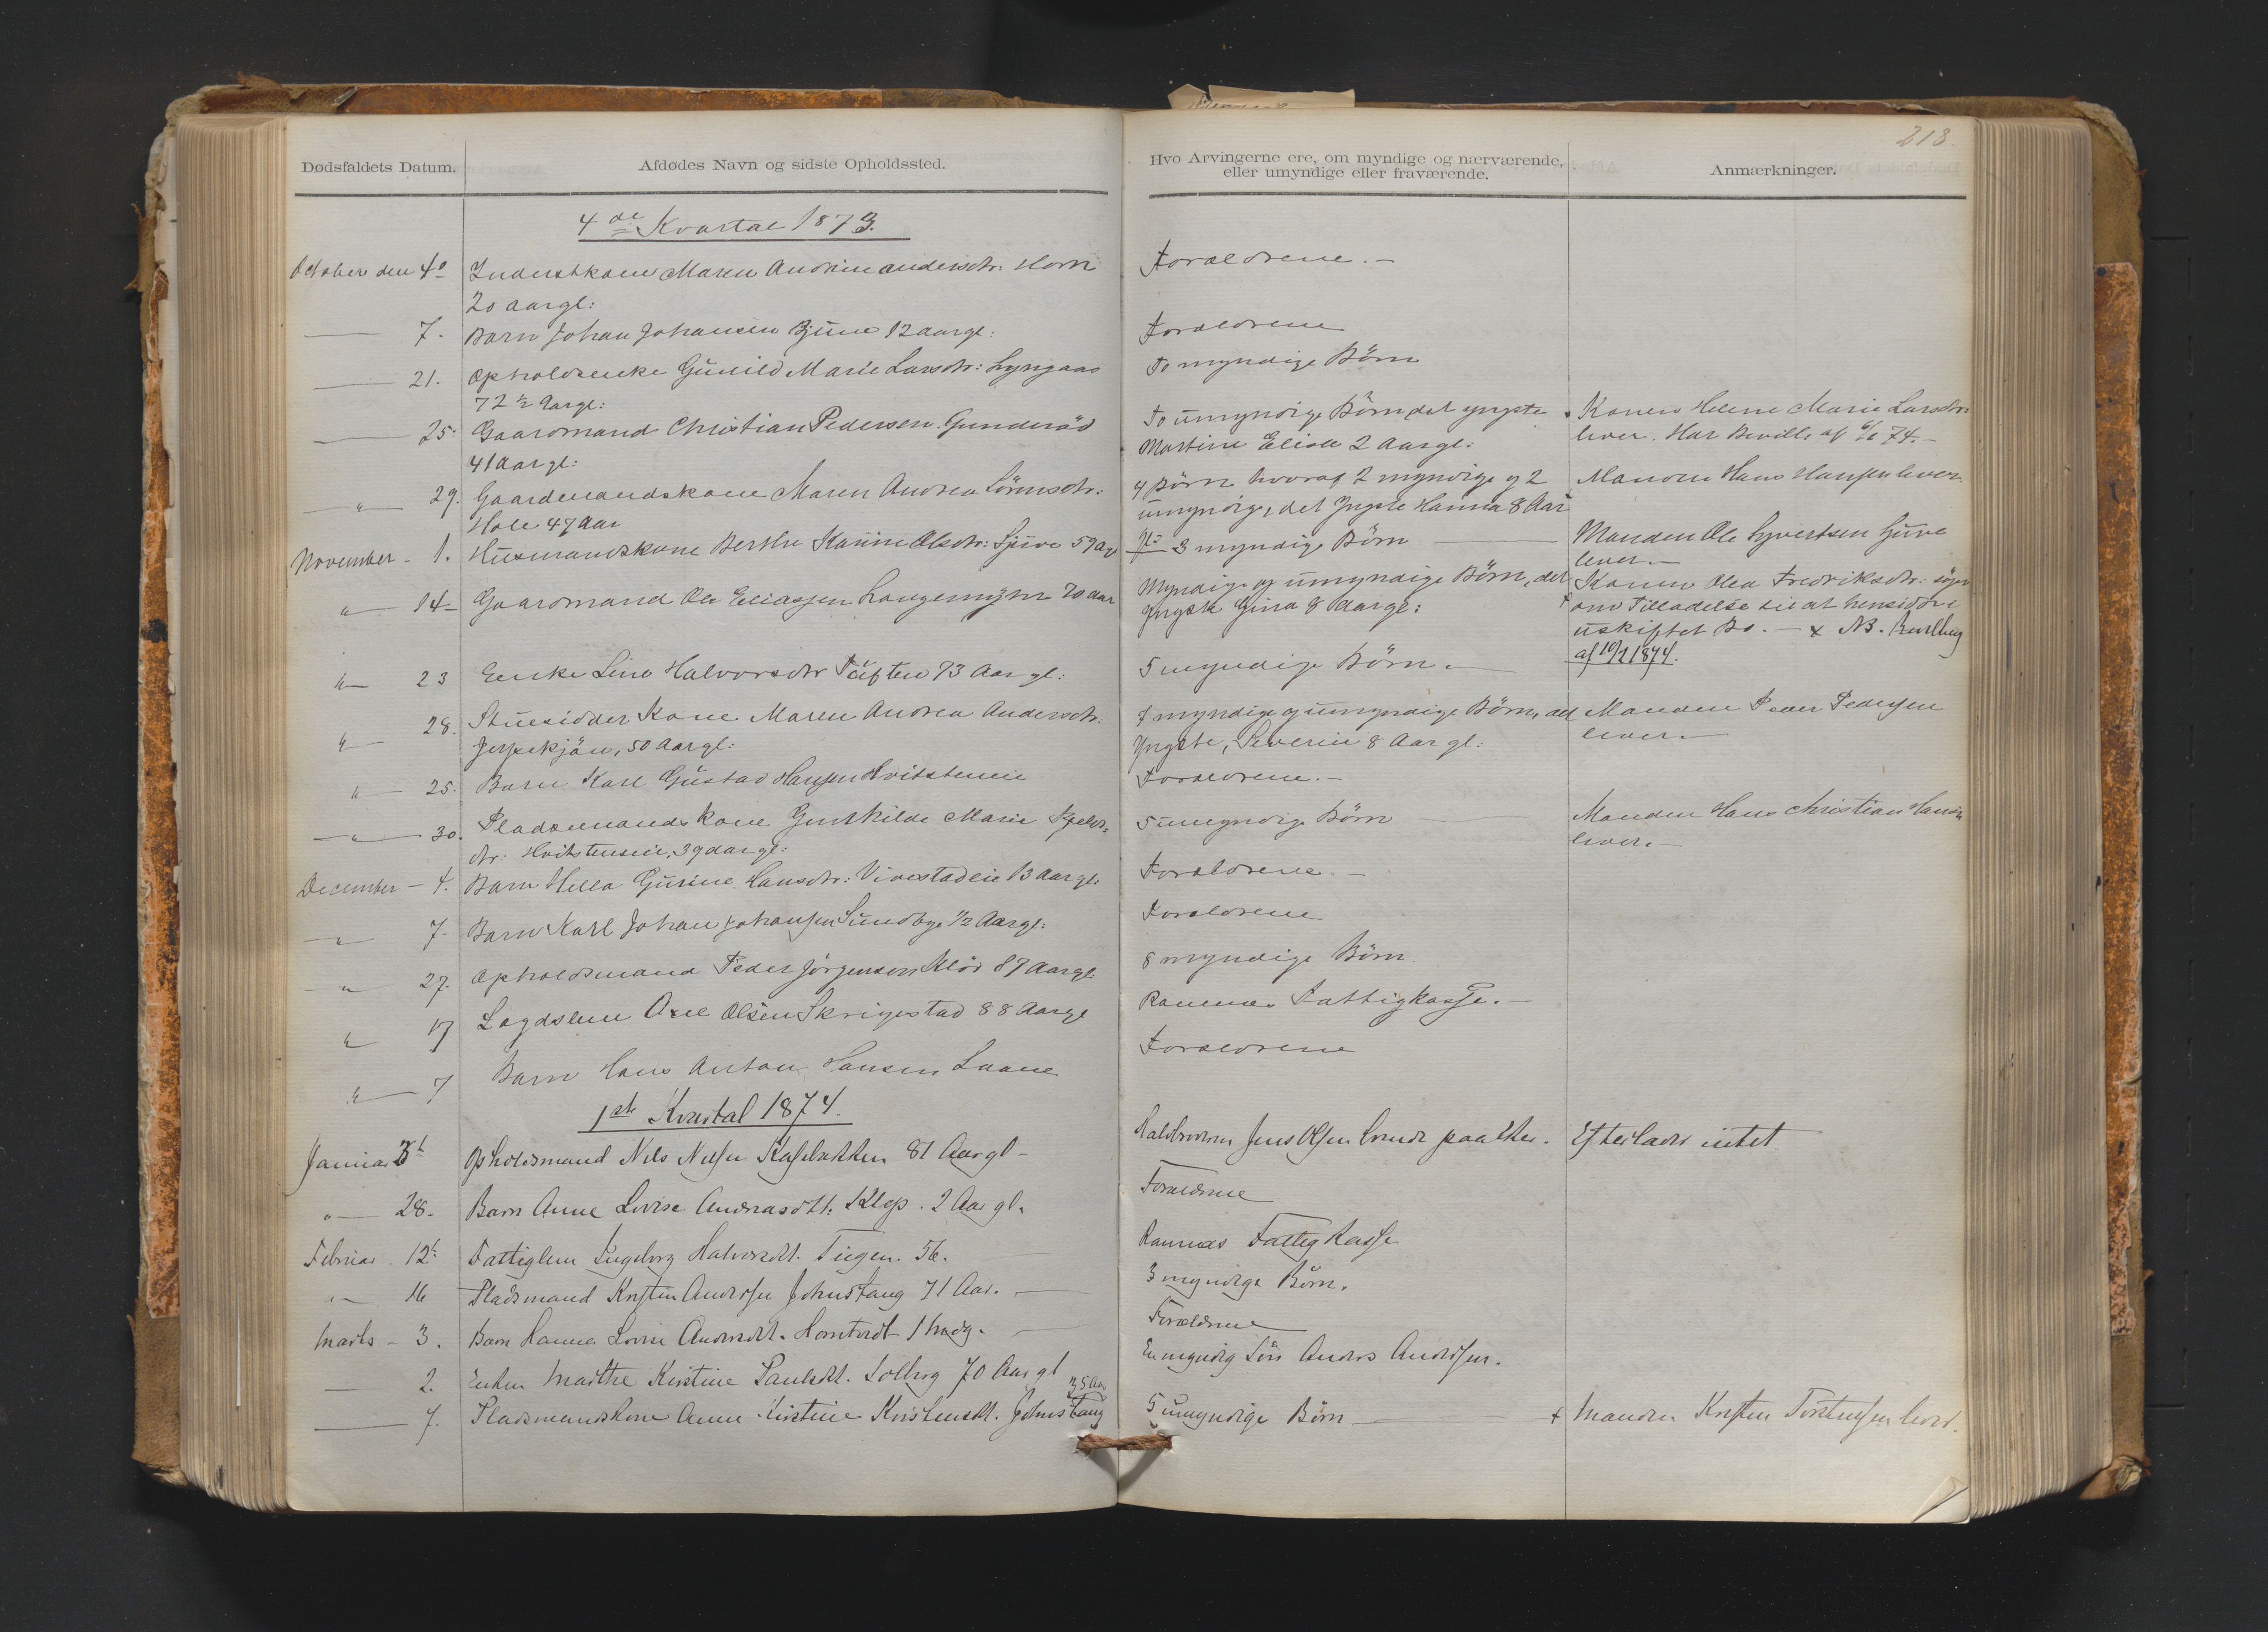 213
Dødsfaldets Datum.
Afdødes Navn og sidste Opholdssted.
Hvo Arvingerne ere, om myndige og nærværende,
eller umyndige eller fraværende.
Anmærkninger.
4de Kvartal 1873.
October den 4de Inderstkone Maren Andrine Andersdtr. Horn
20 aargl:
Forældrene.-
7. Barn Johan Johansen Bjune 12 aargl:
Forældrene
21. Opholdsenke Gunild Marie Larsdtr: Lyngaas
72½ Aargl:
To myndige Börn
25. Gaardmand Christian Pedersen Gunderöd
41 Aargl:
To umyndige Börn det yngste
Martine Elise 2 Aargl:
Konen Helene Marie Larsdtr:
lever. Har Bevill. af 74.-
" 29. Gaardmandskone Maren Andrea Sörensdtr:
Hole 47 Aar
4 Börn hvoraf 2 myndige og 2
umyndige, det Yngste Hanna 8 Aar
Manden Hans Hansen lever
November - 1. Husmandskone Berthe Karine Olsdtr: Gjuve 59 Aar
3 myndige Börn
Manden Ole Syvertsen Gjuve
lever.-
" 14- Gaardmand Ole Eliassen Langemyhr 70 Aar
Myndige og umyndige Börn, det
Yngste Gina 8 Aargl:
Konen Olea Fredriksdtr: söger
om Tilladelse til at hensidde i
uskiftet Bo. - x NB.
af 10/2 1874.
" 23 Enke Line Halvorsdtr Töften 73 Aargl:
5 myndige Börn.
" 28. Stuesidder Kone Maren Andrea Andersdtr.
Jerpekjön, 50 Aargl:
7 myndige og umyndige Börn, det
Yngste, Severin 8 Aar gl:
Manden Peder Pedersen
lever.-
" 25. Barn Karl Gustav Hansen Hvitsteneie
Forældrene.-
" 30. Pladsmands kone Gunhilde Marie
dtr: Hvitsteneie, 39 Aargl:
5 umyndige Börn
Manden Hans Christian Hansen
lever.-
December - 4. Barn Hella Gurine Hansdtr: Vivestadeie 13 Aargl:
Forældrene.-
" 7. Barn Karl Johan Johansen Sundbye ½ Aargl:
Forældrene
" 27. Opholdsmand Peder Jörgensen Klöd 87 Aargl:
8 myndige Börn
" 17 Lægdslem Axel Olsen Skrigestad 88 Aargl
Ramnæs Fattigkasse.-
" 7 Barn Hans Anton Hansen Laane
Forældrene
1ste Kvartal 1874.
Januar Opholdsmand Nils Nilsen 81 Aar gl-
Jens Olsen paa Eker.
Efterlader intet
" 28. Barn Anne Lovise Andreasdtt. Klop. 2 Aar gl.
Forældrene
Februar 12te Fattiglem Ingeborg Halvorsdtt. Tiegen. 56.
Ramnæs Fattig Kasse
" 16 Pladsmand Kristen Andersen Johnstang 71 Aar.
3 myndige Börn.
Marts - 3. Barn Hanna Lovise Andersdtt. 1 Mdg.
Forældrene
2. Enken Marthe Kirstine Paulsdtt. Solberg 70 Aar gl
En myndig Sön Anders Andersen.
7. Pladsmandskone Anne Kirstine Kristensdtt. Johnstang
35 Aar
5 umyndige Börn
+ Manden Kristen Torstensen lever.